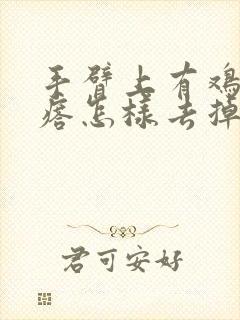 手臂上有鸡
痞怎样去掉
君可安好